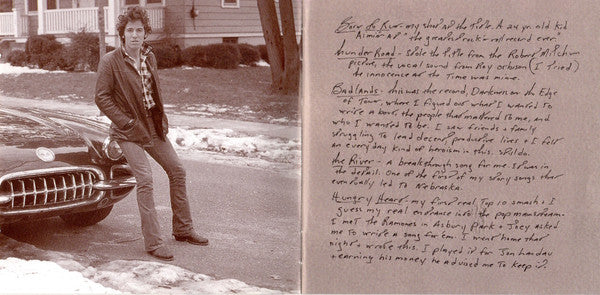 Born to Run - my shot at the title. A 24 yr. old kid
Aimin' at "the greatest rock 'n roll record ever"
Thunder Road - stole the title from the Robert Mitchum
picture, the vocal sound from Roy Orbison (I tried)
the innocence at the time was mine.
Badlands - this was the record, Darkness on the Edge
of Town, where I figured out what I wanted to
write about, the people that mattered to me, and
who I wanted to be. I saw friends + family
struggling to lead decent, productive lives + I felt
an everyday kind of heroism in this. Still do.
the River - A breakthrough song for me. It was in
the detail. One of the first of my story songs that
eventually led to Nebraska.
Hungry Heart - my first real Top 10 smash + I
guess my real entrance into the pop mainstream.
I met the Ramones in Asbury Park + Joey asked
me to write a song for 'em. I went home that
night + wrote this. I played it for Jon Landau
+ earning his money he advised me to keep it.